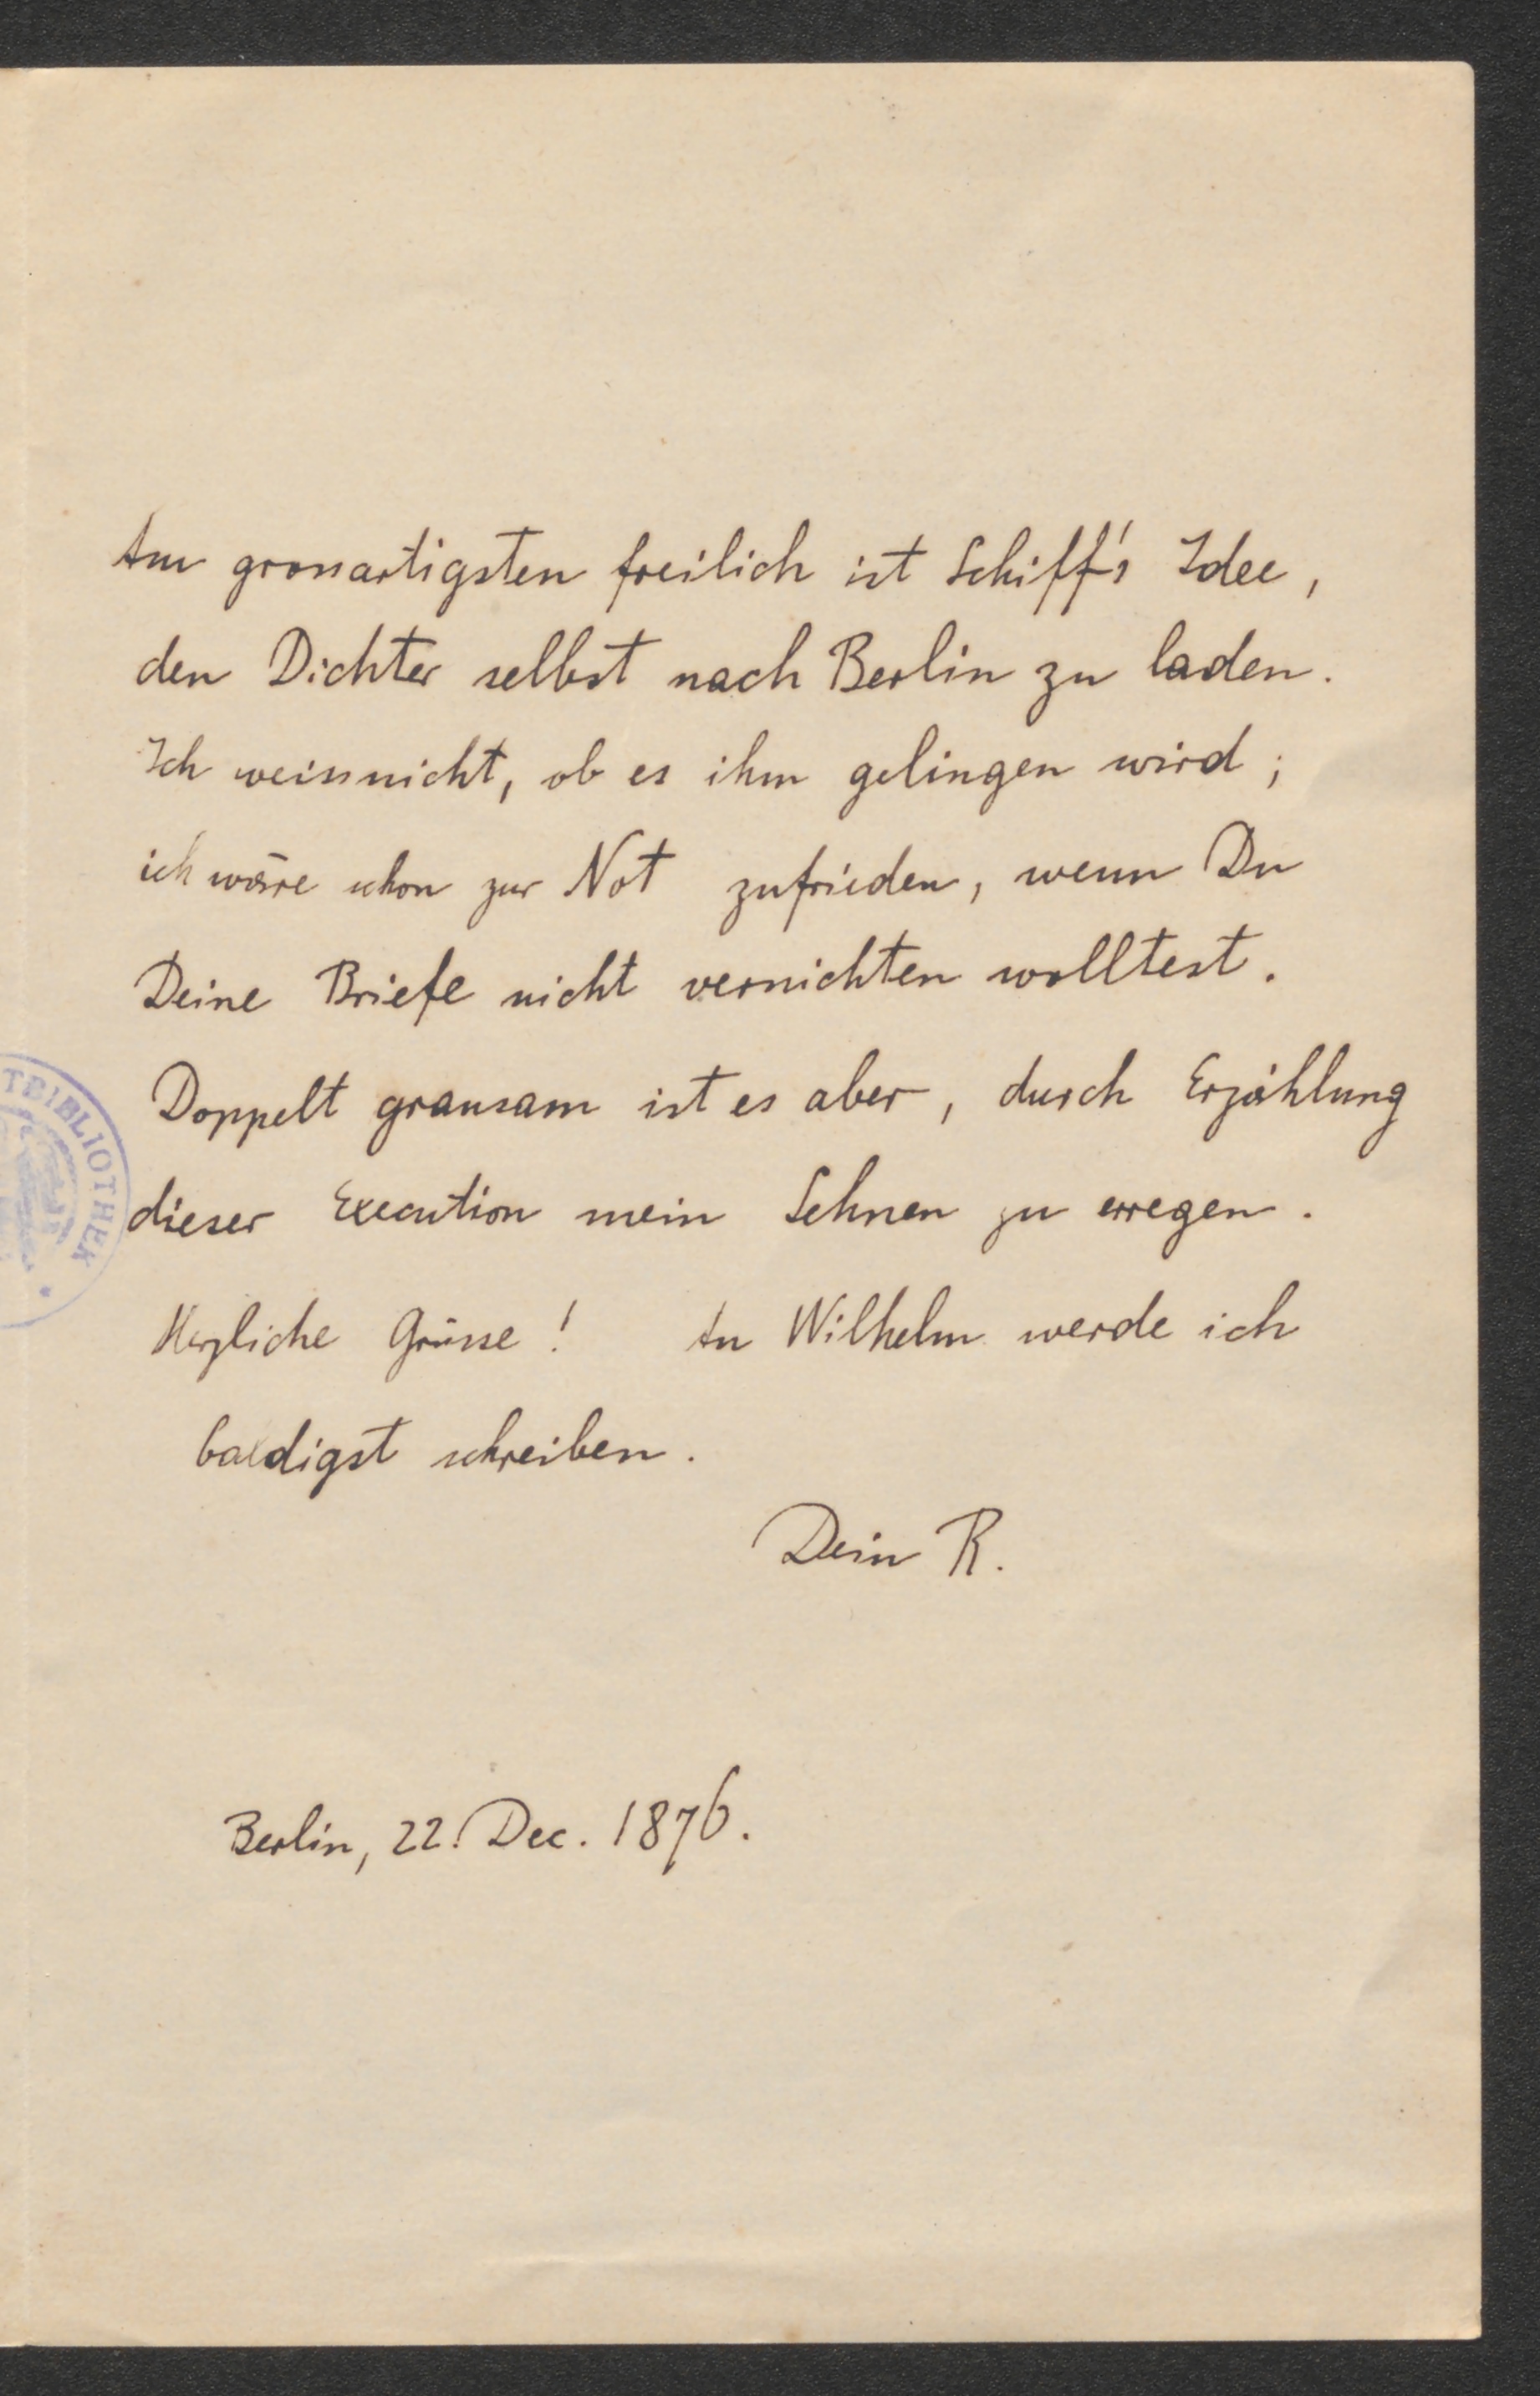 Am grossartigsten freilich ist Schiff's Idee,
den Dichter selbst nach Berlin zu laden.
Ich weiss nicht, ob es ihm gelingen wird;
ich wäre schon zur Not zufrieden, wenn Du
Deine Briefe nicht vernichten wolltest.
Doppelt grausam ist es aber, durch Erzählung
dieser Execution mein Sehnen zu erregen.
Herzliche Grüsse! An Wilhelm werde ich
baldigst schreiben.
Dein R.
Berlin, 22. Dec. 1876.
TBIBLIOTHEK